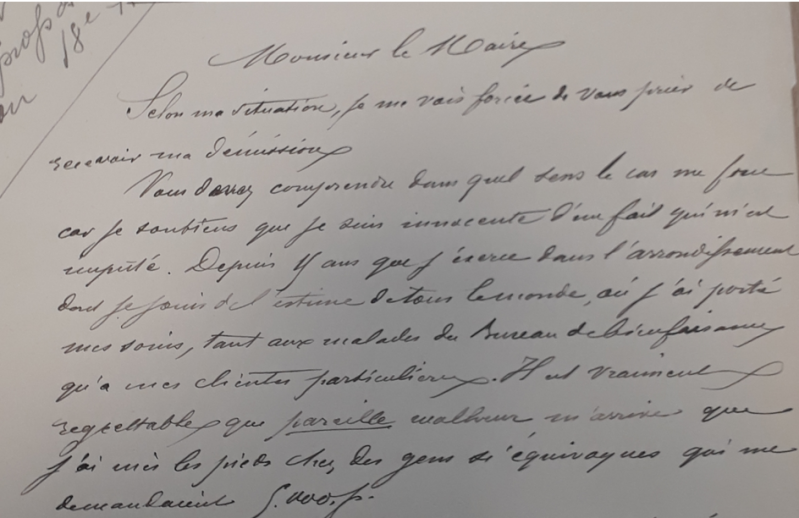 18e
Monsieur le Maire
Selon ma situation, je me vois forcée de vous prier de
recevoir ma démission
Vous devez comprendre dans quel sens le cas me force
car je soutiens que je suis innocente d'un fait qui m'est
imputé. Depuis 4 ans que j'exerce dans l'arrondissement
dont je jouis de l'estime de tous le monde, où j'ai porté
mes soins, tant aux malades du Bureau de bienfaisance
qu'a mes clientes particulières. Il est vraiment
regrettable que pareille malheur m'arrive que
j'ai mis les pieds chez des gens si équivoques qui me
demandaient 5.000 f.